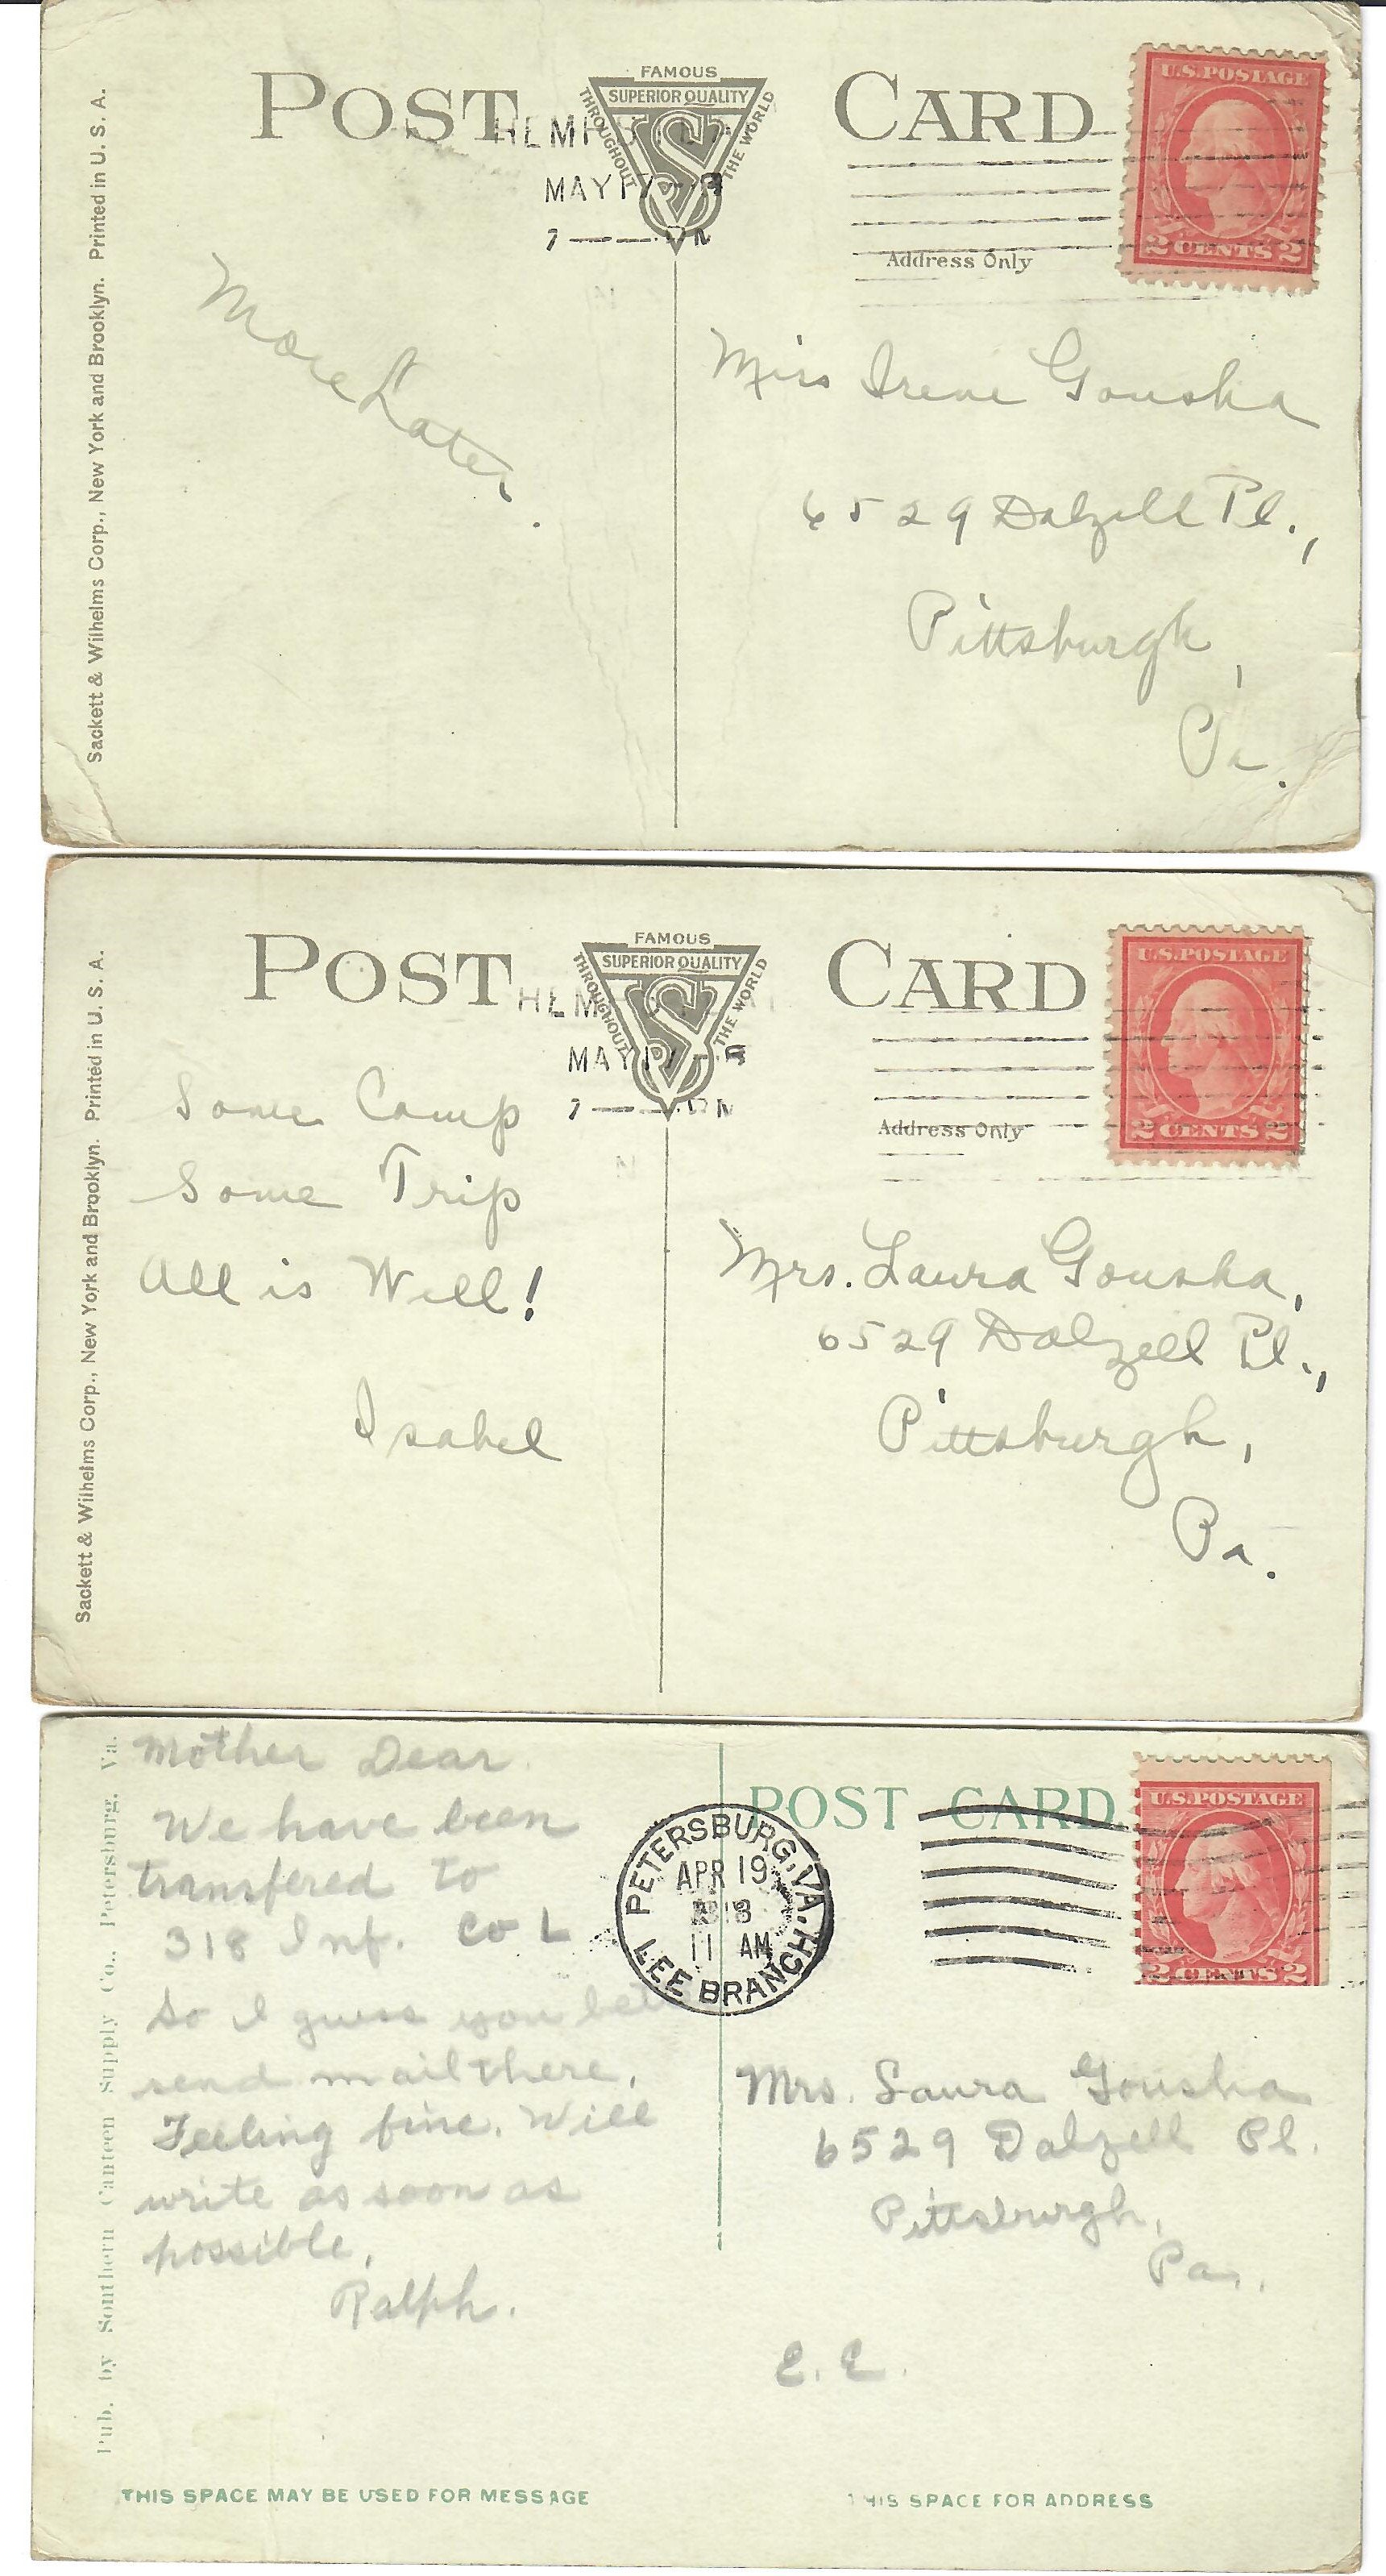 POST CARD
FAMOUS
SUPERIOR QUALITY
THROUGHOUT THE WORLD
U.S. POSTAGE
2 CENTS 2
MAY 17
7
Address Only
Sackett & Wilhelms Corp., New York and Brooklyn. Printed in U. S. A.
More Later.
Miss Irene Gousha
6529 Dalzell Pl.,
Pittsburgh,
Pa.
POST CARD
FAMOUS
SUPERIOR QUALITY
THROUGHOUT THE WORLD
U.S. POSTAGE
2 CENTS 2
MAY
7
Address Only
Sackett & Wilhelms Corp., New York and Brooklyn. Printed in U. S. A.
Some Camp
Some Trip
All is Well!
Isabel
Mrs. Laura Gousha,
6529 Dalzell Pl.,
Pittsburgh,
Pa.
Pub. by Southern Canteen Supply Co., Petersburg, Va.
Mother Dear
We have been
transfered to
318 Inf. Co L
So I guess you
send mail there.
Feeling fine. Will
write as soon as
possible.
Ralph.
POST CARD
PETERSBURG, VA.
APR 19
11 AM
LEE BRANCH
U.S. POSTAGE
2 CENTS 2
Mrs. Laura Gousha
6529 Dalzell Pl.
Pittsburgh,
Pa.
E. E.
THIS SPACE MAY BE USED FOR MESSAGE
THIS SPACE FOR ADDRESS